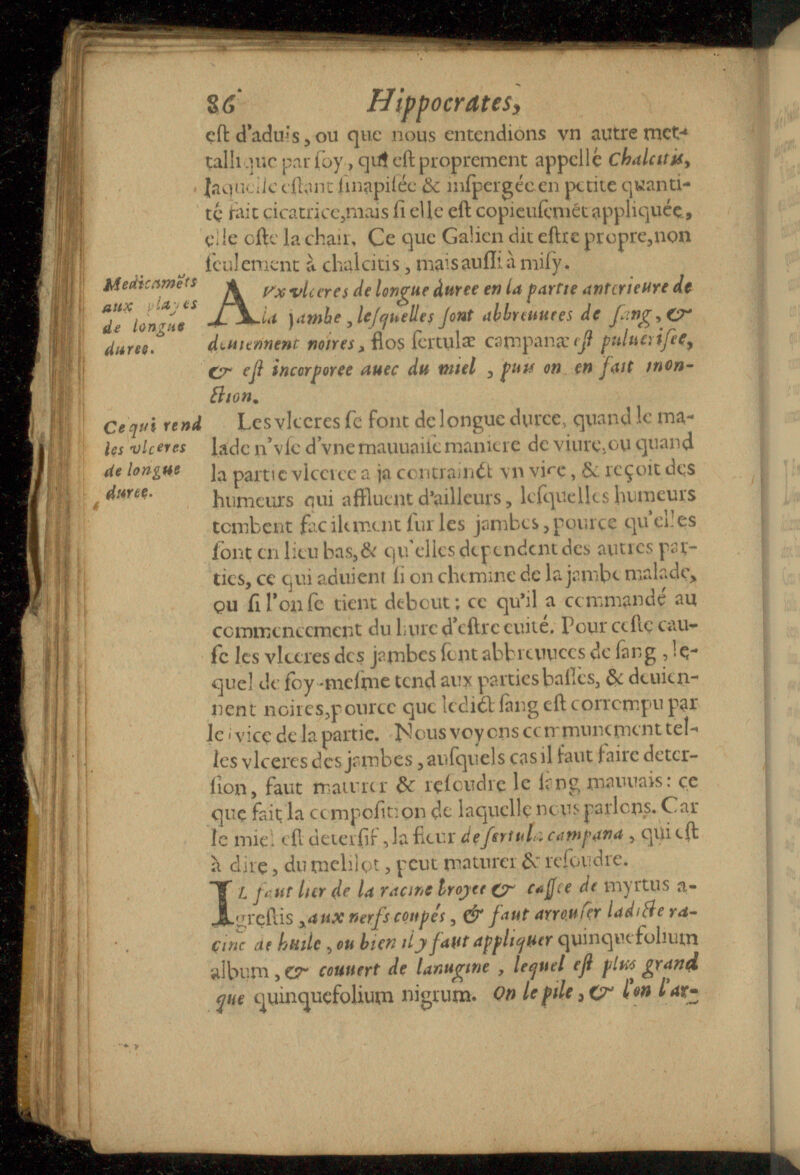 86 Hippocrates,
est d'aduis, ou que nous entendions vn autre met-
tallique par soy, qui est proprement appellé Chalcitis,
laquelle estant sinapisée & inspergée en petite quanti-
té fait cicatrice, mais si elle est copieusemét appliquée,
elle oste la chair. Ce que Galien dit estre propre, non
seulement à chalcitis, mais aussi à misy.
Medicamēts
aux playes
de longue
duree.
AVx vlceres de longue duree en la partie anterieure de
la jambe, lesquelles sont abbreuuees de sang, &
deuiennent noires, flos fertulæ campanæ est puluerisee,
& est incorporee auec du miel, puis on en fait mon-
ction.
Ce qui rend
les vlceres
de longue
duree.
Les vlceres se font de longue duree, quand le ma-
lade n'vse d'vne mauuaise maniere de viure, ou quand
la partie vlceree a ja contrainct vn vice, & reçoit des
humeurs qui affluent d'ailleurs, lesquelles humeurs
tombent facilement sur les jambes, pource qu'elles
sont en lieu bas, & qu'elles dependent des autres par-
ties, ce qui aduient si on chemine de la jambe malade,
ou si l'on se tient debout; ce qu'il a commandé au
commencement du liure d'estre euité. Pour ceste cau-
se les vlceres des jambes sont abbreuuees de sang, le-
quel de soy-mesme tend aux parties basses, & deuien-
nent noires, pource que ledict sang est corrompu par
le vice de la partie. Nous voyons communement tel-
les vlceres des jambes, ausquels cas il faut faire deter-
sion, faut maturer & resoudre le sang mauuais: ce
que fait la composition de laquelle nous parlons. Car
le miel est detersif, la fleur de fertula campana, qui est
à dire, du melilot, peut maturer & resoudre.
IL faut lier de la racine broyee & cassee de myrtus a-
grestis, aux nerfs coupés, & faut arrouser ladicte ra-
cine de huile, ou bien il y faut appliquer quinquefolium
album, & couuert de lanugine, lequel est plus grand
que quinquefolium nigrum. On le pile, & l'on l'ar-